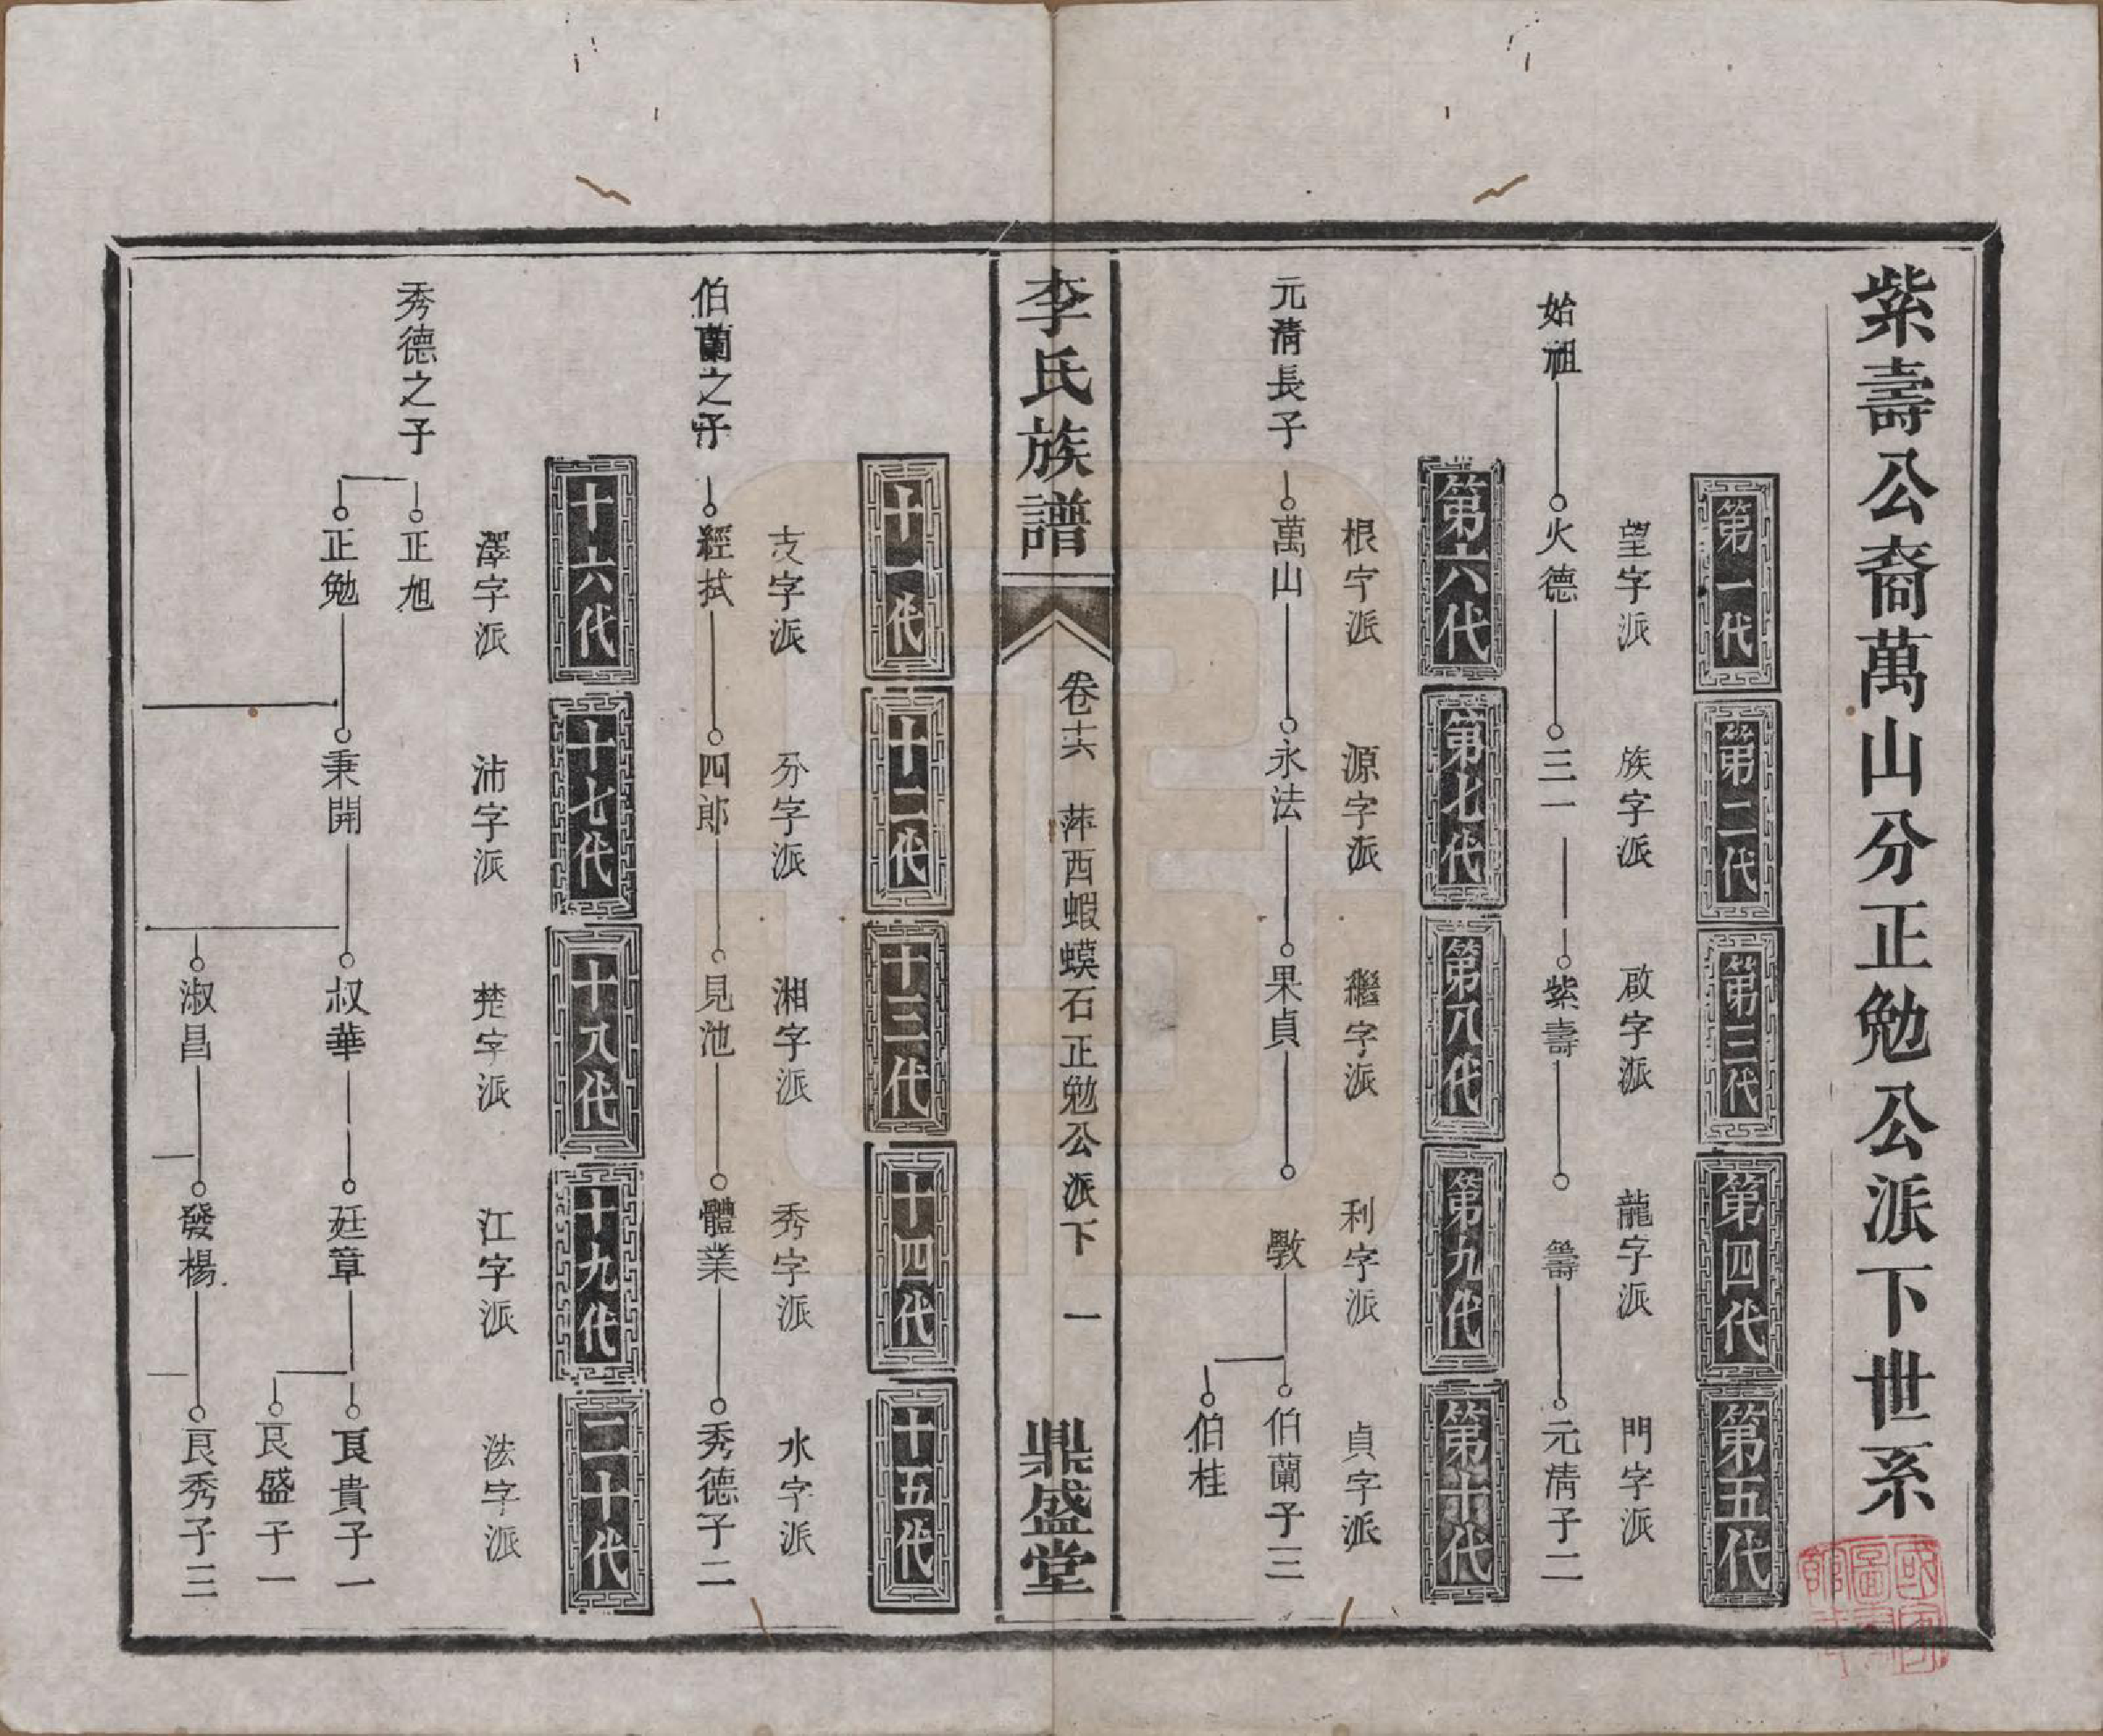 紫壽公裔萬山分正勉公派下世系
第一代 第二代 第三代 第四代 第五代
望字派 族字派 啟字派 龍字派 門字派
始祖 火德 三一 紫壽 籌 元清子二
第六代 第七代 第八代 第九代 第十代
根字派 源字派 繼字派 利字派 貞字派
元清長子 萬山 永法 果貞 斆 伯蘭子三
伯桂
李氏族譜 卷十六 萍西蝦蟆石正勉公派下 一 鼎盛堂
十一代 十二代 十三代 十四代 十五代
支字派 分字派 湘字派 秀字派 水字派
伯蘭之子 經拭 四郎 見池 體業 秀德子二
十六代 十七代 十八代 十九代 二十代
澤字派 沛字派 楚字派 江字派 法字派
秀德之子 正旭
正勉 秉開 叔華 廷章 良貴子一
良盛子一
淑昌 發楊 良秀子三